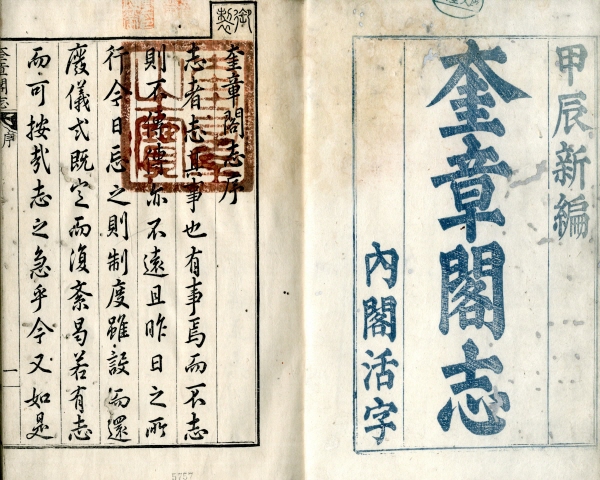 甲辰新編
奎章閣志
內閣活字
御製
奎章閣志序
志者志其事也有事焉而不志
則不傳傳亦不遠且昨日之所
行今日忘之則制度雖設而還
廢儀式旣定而復紊曷若有志
而可按哉志之急乎今又如是
奎章閣志
序
一